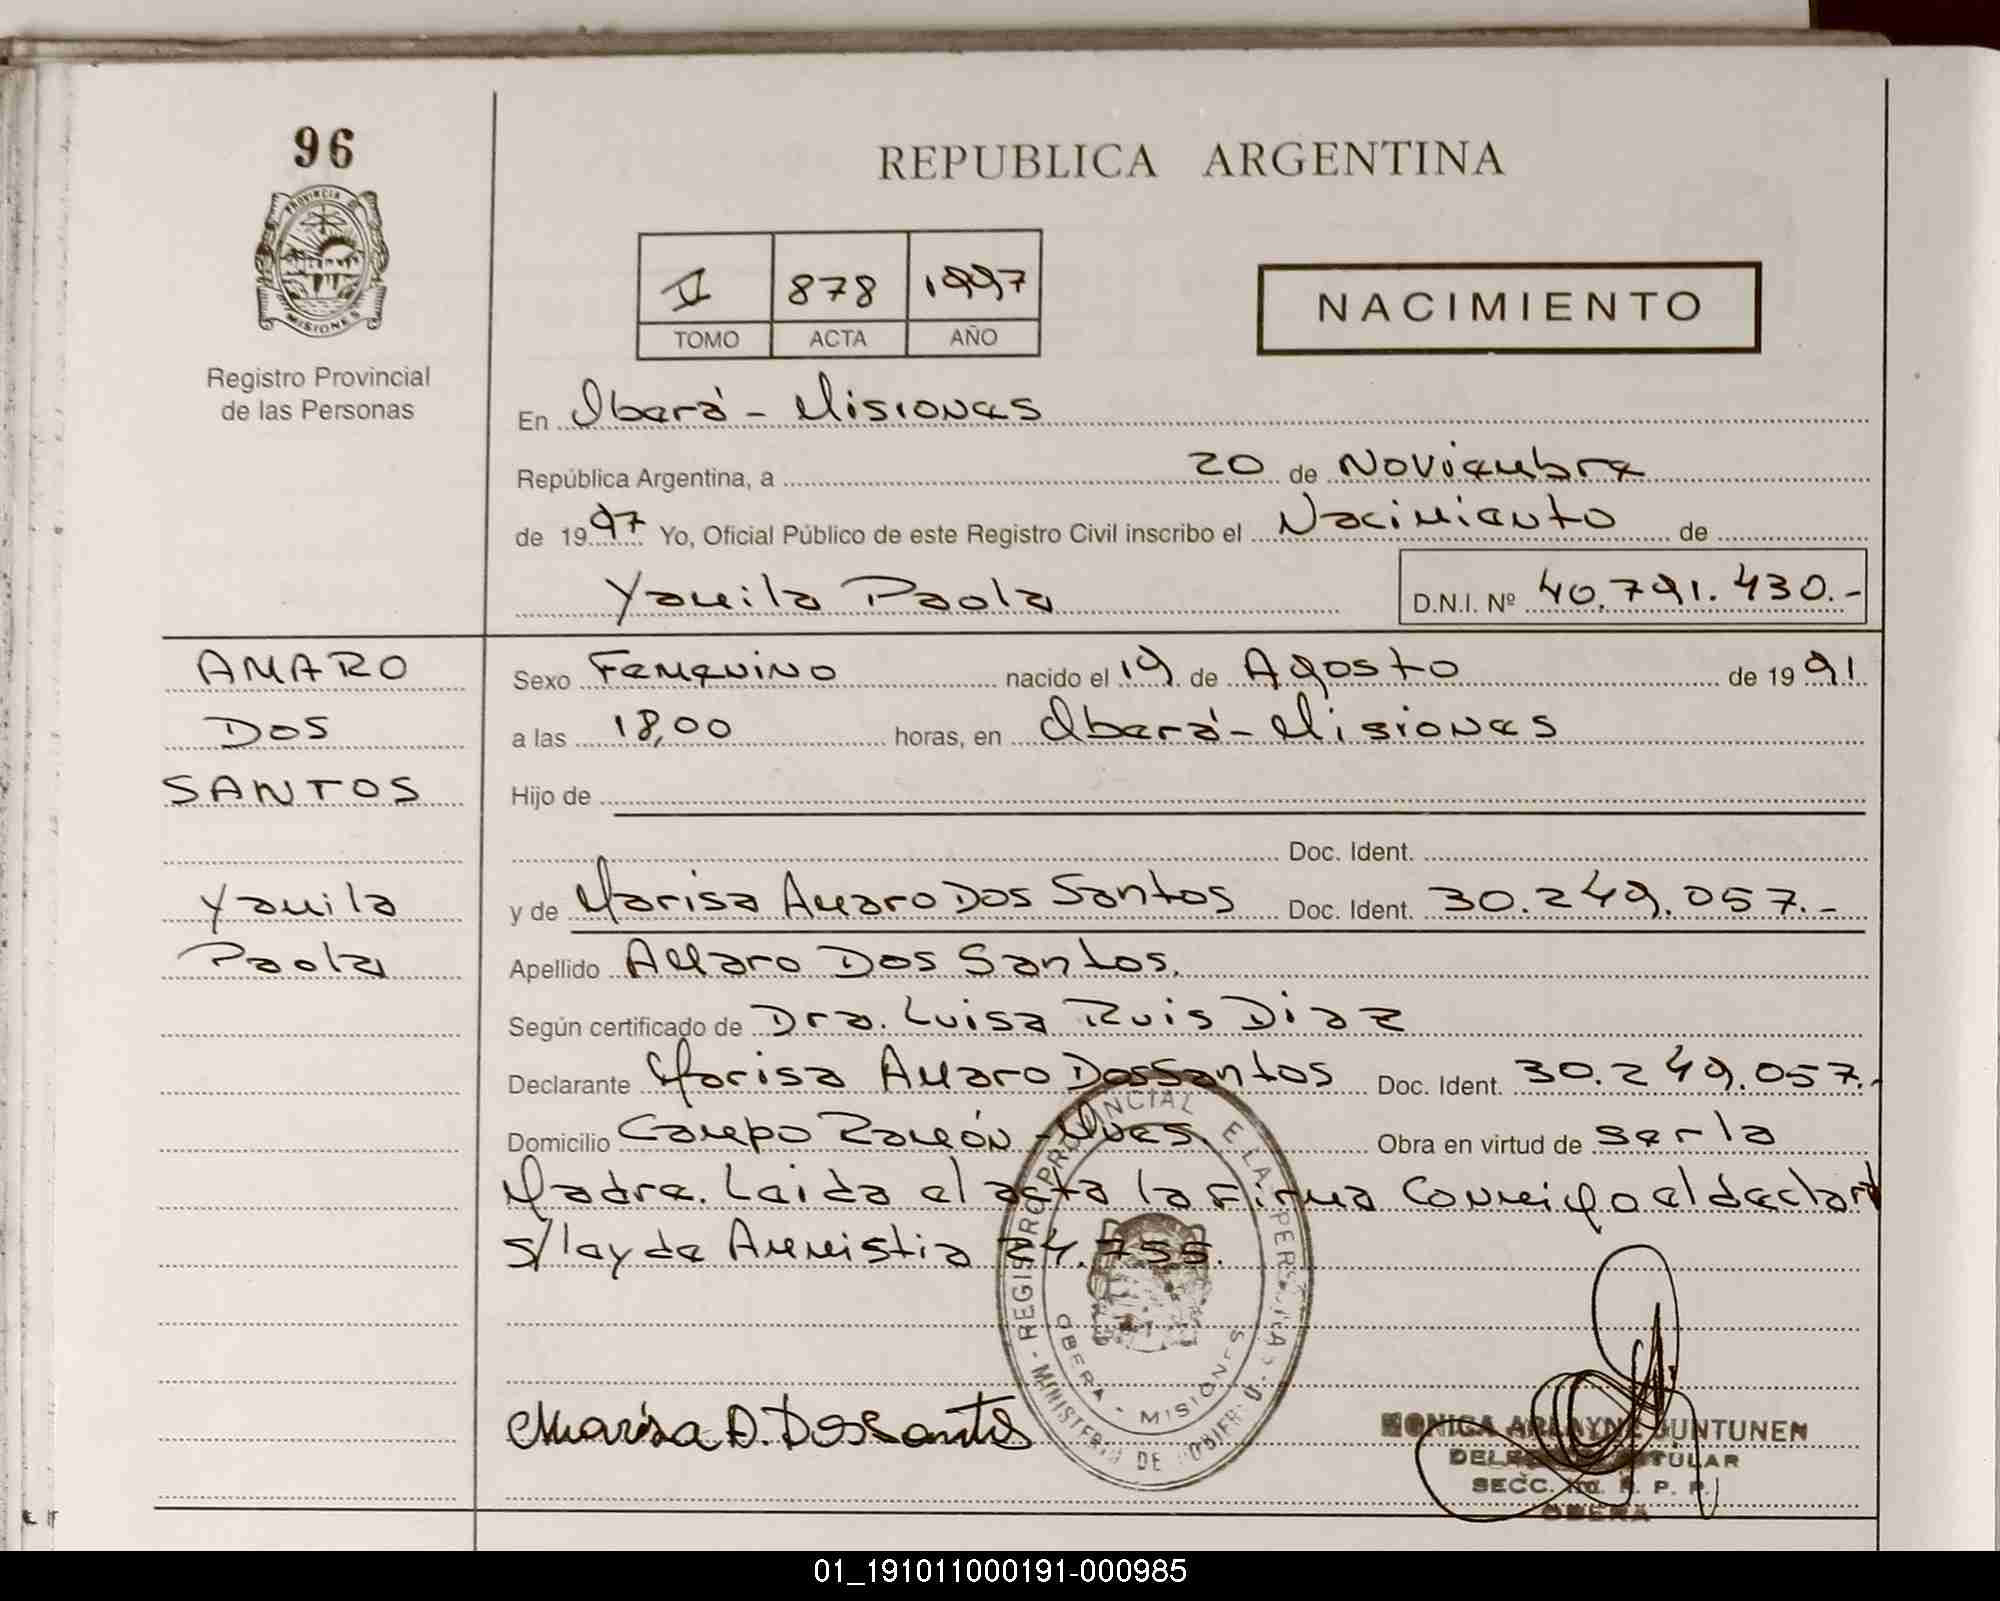 96
PROVINCIA DE
MISIONES
Registro Provincial
de las Personas
REPUBLICA ARGENTINA
II 878 1997
TOMO ACTA AÑO
NACIMIENTO
En Oberá - Misiones
República Argentina, a 20 de Noviembre
de 1997 Yo, Oficial Público de este Registro Civil inscribo el Nacimiento de
Yamila Paola D.N.I. Nº 40.791.430.-
AMARO
DOS
SANTOS
Yamila
Paola
Sexo Femenino nacido el 19 de Agosto de 1991
a las 18,00 horas, en Oberá - Misiones
Hijo de
Doc. Ident.
y de Marisa Amaro Dos Santos Doc. Ident. 30.249.057.-
Apellido Amaro Dos Santos.
Según certificado de Dra. Luisa Ruis Diaz
Declarante Marisa Amaro Dos Santos Doc. Ident. 30.249.057.-
Domicilio Campo Ramón - Mnes. Obra en virtud de ser la
Madre. Leida el acta la Firma Conmigo el declart
s/ley de Amnistia 24.755.
REGISTRO PROVINCIAL DE LAS PERSONAS
OBERA - MISIONES
MINISTERIO DE GOBIERNO
Marisa A. Dos Santos
MONICA ARLAYNE JUNTUNEN
DELEGADA TITULAR
SECC. R. P. P.
OBERA
01_191011000191-000985